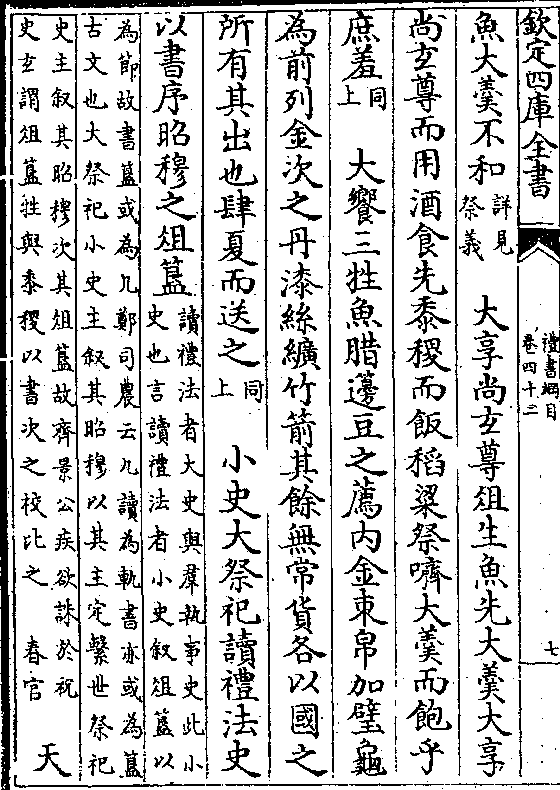 欽定四庫全書
禮書綱目
卷四十二
七
魚大羹不和
詳見
祭義
大享尚玄尊俎生魚先大羹大享
尚玄尊而用酒食先黍稷而飯稻粱祭嚌大羹而飽乎
庶羞
同
上
大饗三牲魚腊籩豆之薦内金束帛加璧龜
為前列金次之丹漆絲纊竹箭其餘無常貨各以國之
所有其出也肆夏而送之
同
上
小史大祭祀讀禮法史
以書序昭穆之俎簋
讀禮法者大史與羣執事史此小
史也言讀禮法者小史叙俎簋以
為節故書簋或為九鄭司農云九讀為軌書亦或為簋
古文也大祭祀小史主叙其昭穆以其主定繫世祭祀
史主叙其昭穆次其俎簋故齊景公疾欲誅於祝
史玄謂俎簋牲與黍稷以書次之校比之
春官
天